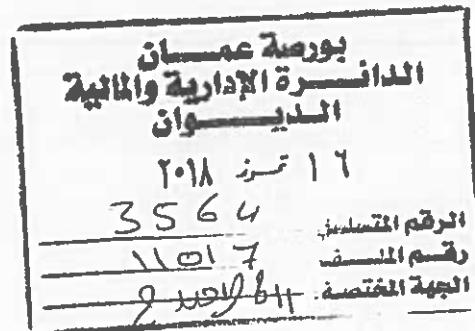 بورصة عمـــان
الدائـــرة الإدارية والمالية
الـديـــوان
١٦ تمـوز ٢٠١٨
الرقم المتسلسل 3564
رقم الملف 11017
الجهة المختصة: